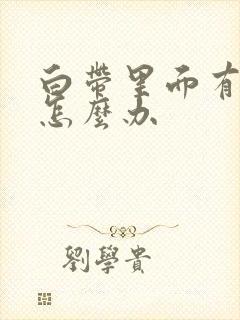 白帶里而有
怎麼办
劉學貴